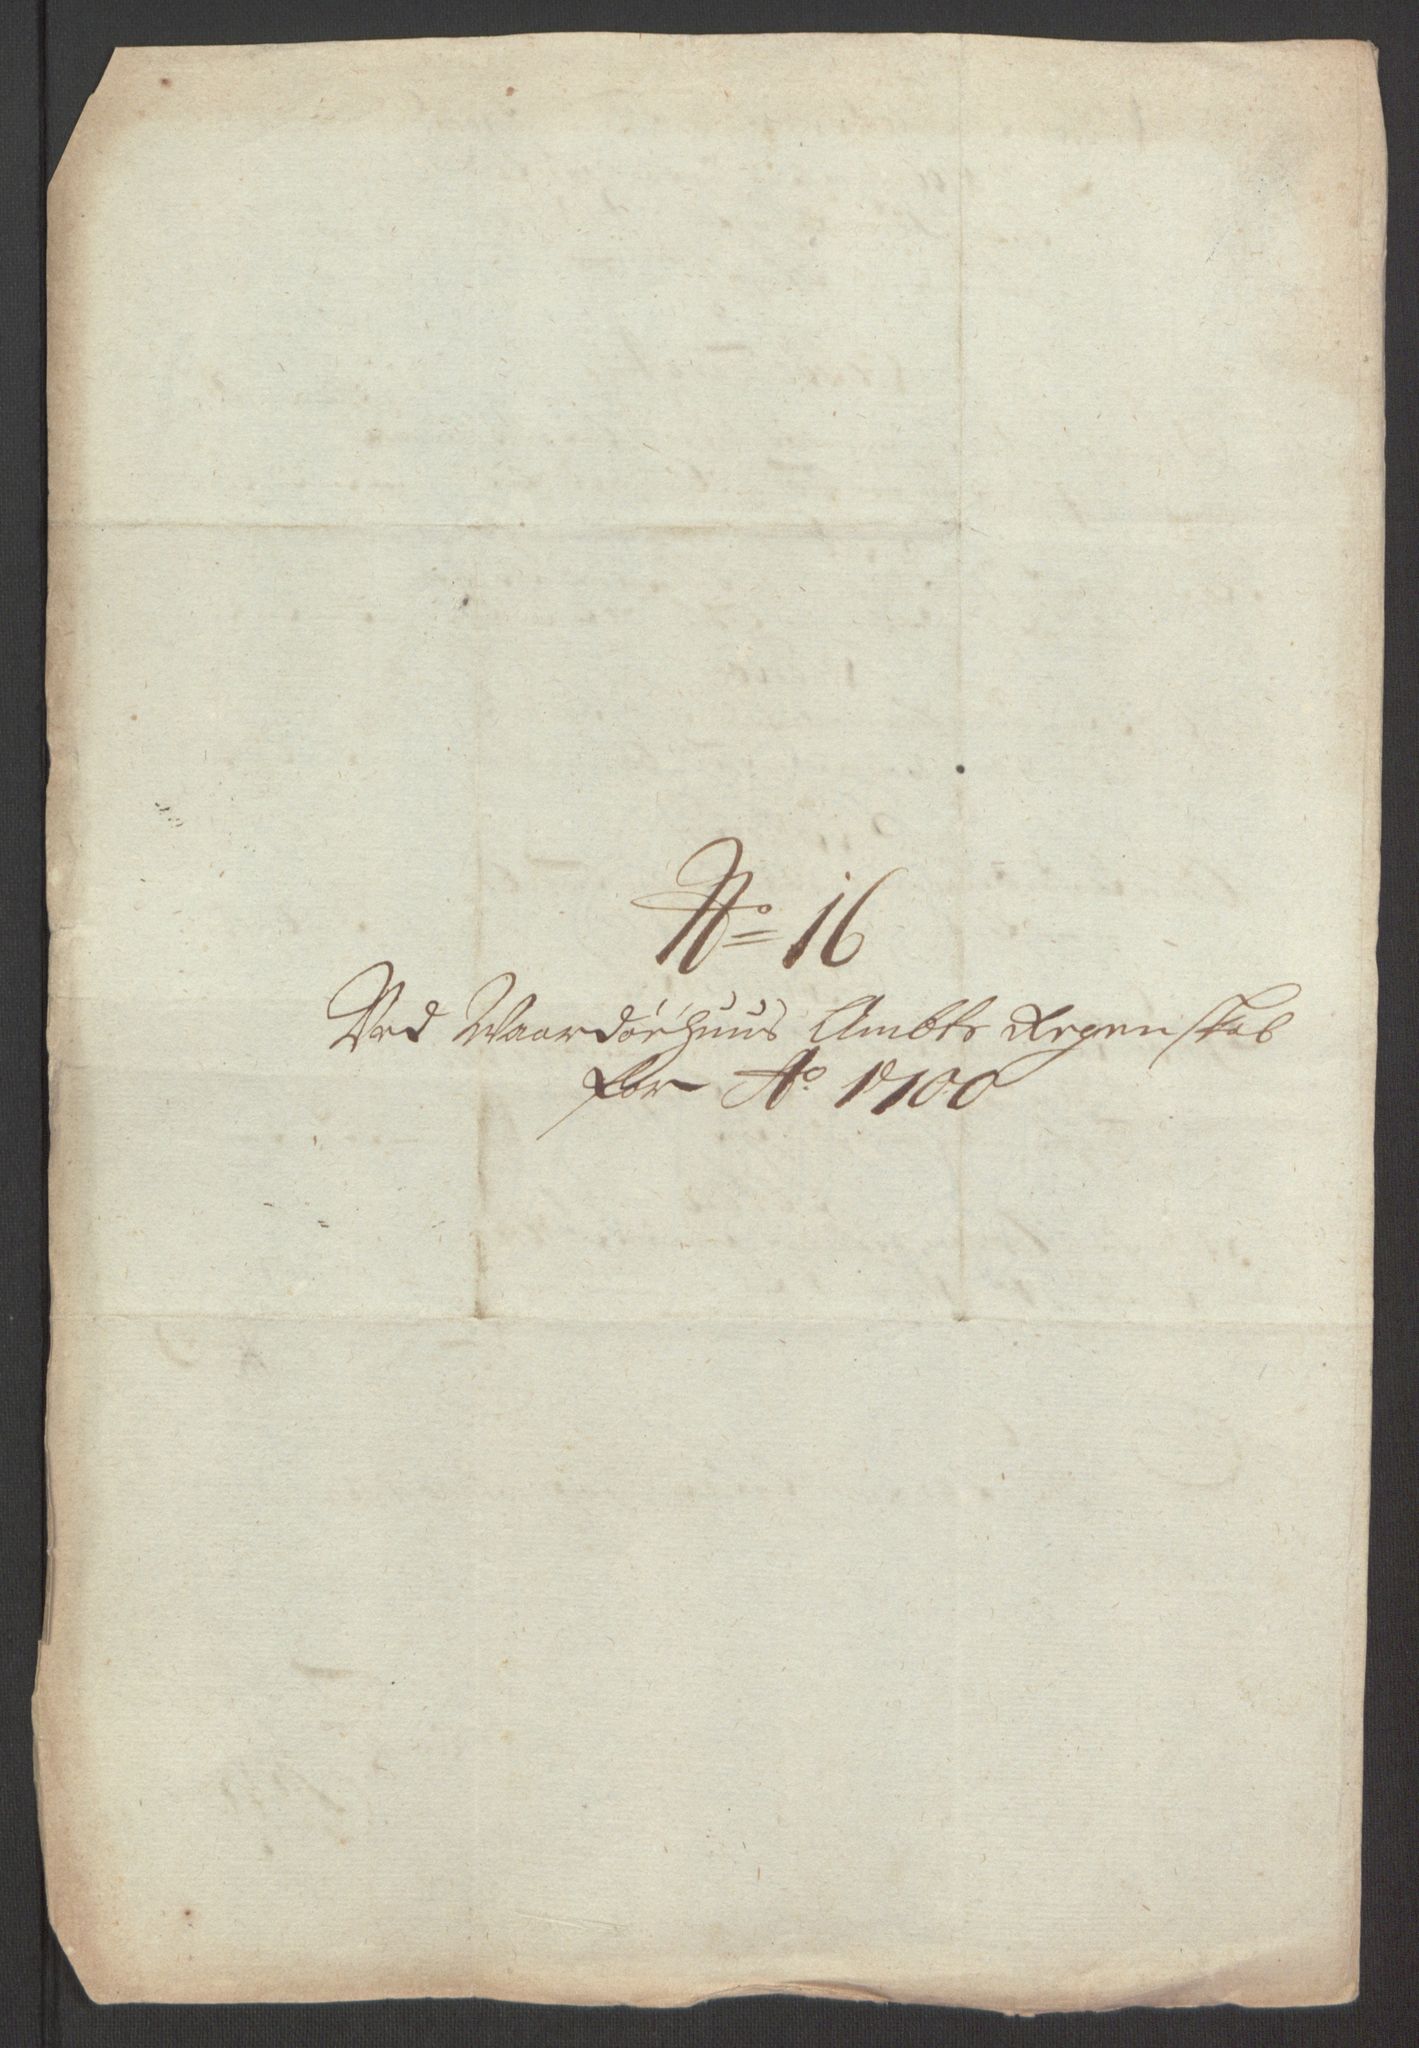 No 16
Ved Waardøehuus Ambts Regenskab
for Ao. 1700